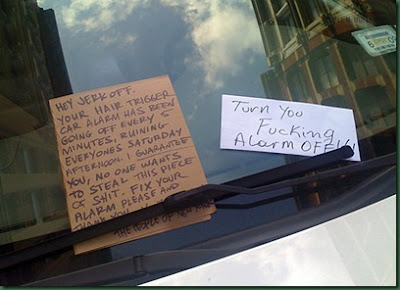 HEY JERKOFF.
YOUR HAIR TRIGGER
CAR ALARM HAS BEEN
GOING OFF EVERY 5
MINUTES, RUINING
EVERYONES SATURDAY
AFTERNOON. I GUARANTEE
YOU, NO ONE WANTS
TO STEAL THIS PIECE
OF SHIT. FIX YOUR
ALARM PLEASE AND
THANK YOU
THE PEOPLE OF NEW
Turn You
Fucking
Alarm OFF!!!